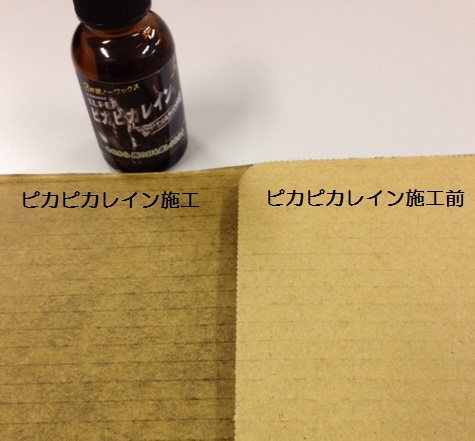 3年間ノーワックス
SUPER
ピカピカレイン
ピカピカレイン施工
ピカピカレイン施工前